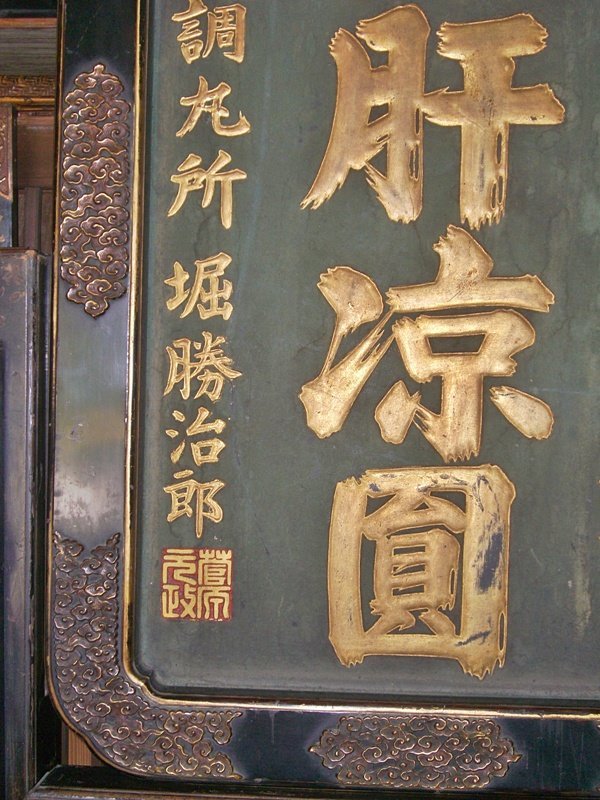 肝凉圓
調丸所 堀勝治郎
菅原
元政